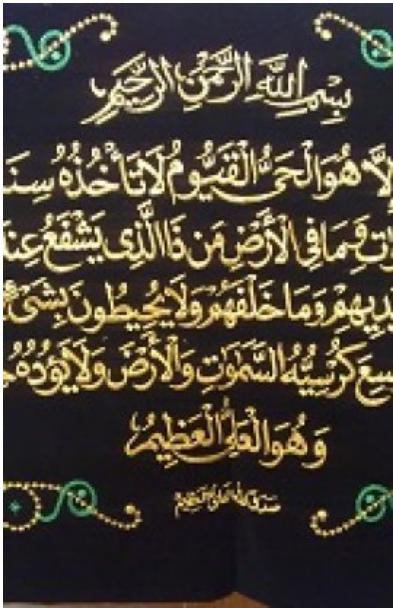 بِسْمِ اللَّهِ الرَّحْمَٰنِ الرَّحِيمِ
إِلَّا هُوَ الْحَيُّ الْقَيُّومُ لَا تَأْخُذُهُ سِنَـ
ـوَاتِ وَمَا فِي الْأَرْضِ مَن ذَا الَّذِي يَشْفَعُ عِنـ
ـدِيهِمْ وَمَا خَلْفَهُمْ وَلَا يُحِيطُونَ بِشَيْءٍ
ـسِعَ كُرْسِيُّهُ السَّمَوَاتِ وَالْأَرْضَ وَلَا يَئُودُهُ حِـ
وَهُوَ الْعَلِيُّ الْعَظِيمُ
صدق الله العلي العظيم